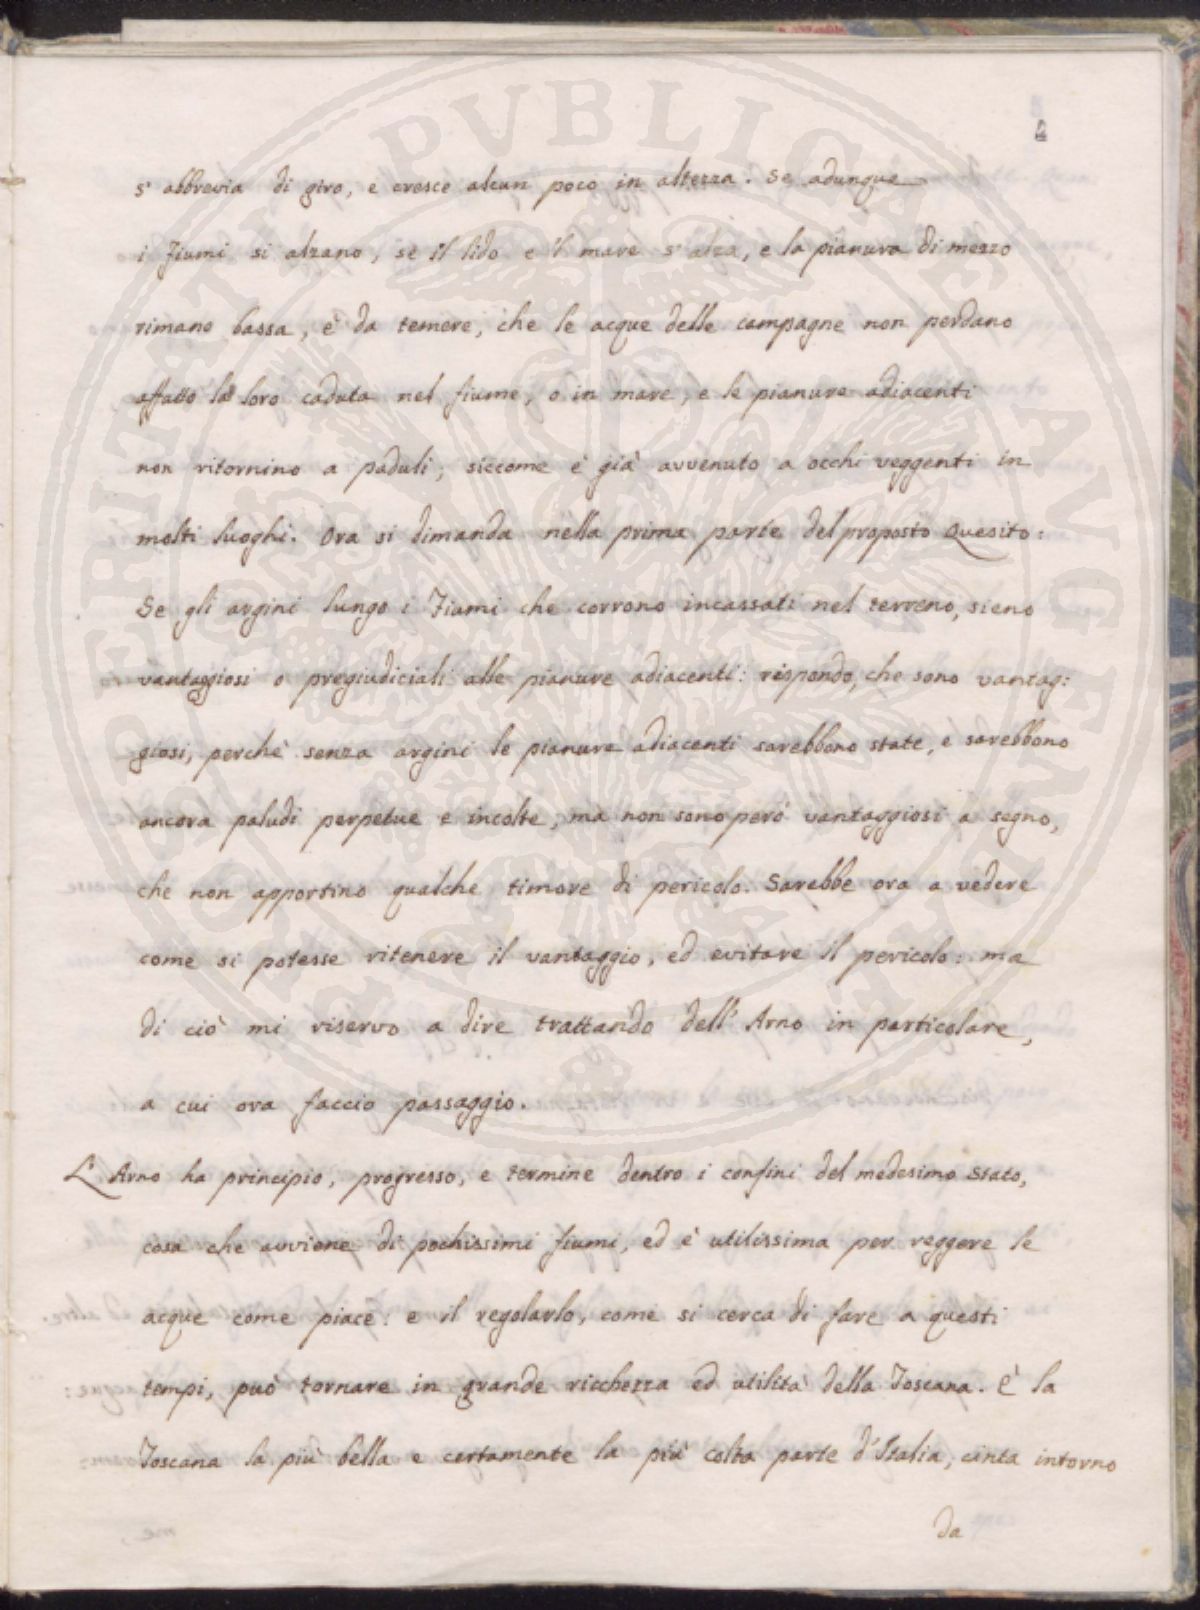 PROSPERITATI PVBLICAE AVGENDAE
4
s' abbrevia di giro, e cresce alcun poco in altezza. Se adunque
i Fiumi si alzano, se il lido e 'l mare s' alza, e la pianura di mezzo
rimane bassa, è da temere, che le acque delle campagne non perdano
affatto la loro caduta nel fiume, o in mare, e le pianure adiacenti
non ritornino a paduli, siccome è già avvenuto a occhi veggenti in
molti luoghi. Ora si dimanda nella prima parte del proposto Quesito:
Se gli argini lungo i Fiumi che corrono incassati nel terreno, sieno
vantaggiosi o pregiudiciali alle pianure adiacenti: rispondo, che sono vantag:
giosi, perchè senza argini le pianure adiacenti sarebbono state, e sarebbono
ancora paludi perpetue e incolte, ma non sono però vantaggiosi a segno,
che non apportino qualche timore di pericolo. Sarebbe ora a vedere
come si potesse ritenere il vantaggio, ed evitare il pericolo: ma
di ciò mi riservo a dire trattando dell' Arno in particolare,
a cui ora faccio passaggio.
L' Arno ha principio, progresso, e termine dentro i confini del medesimo Stato,
cosa che avviene di pochissimi fiumi, ed è utilissima per reggere le
acque come piace: e il regolarlo, come si cerca di fare a questi
tempi, può tornare in grande ricchezza ed utilità della Toscana. È la
Toscana la più bella e certamente la più colta parte d' Italia, cinta intorno
da